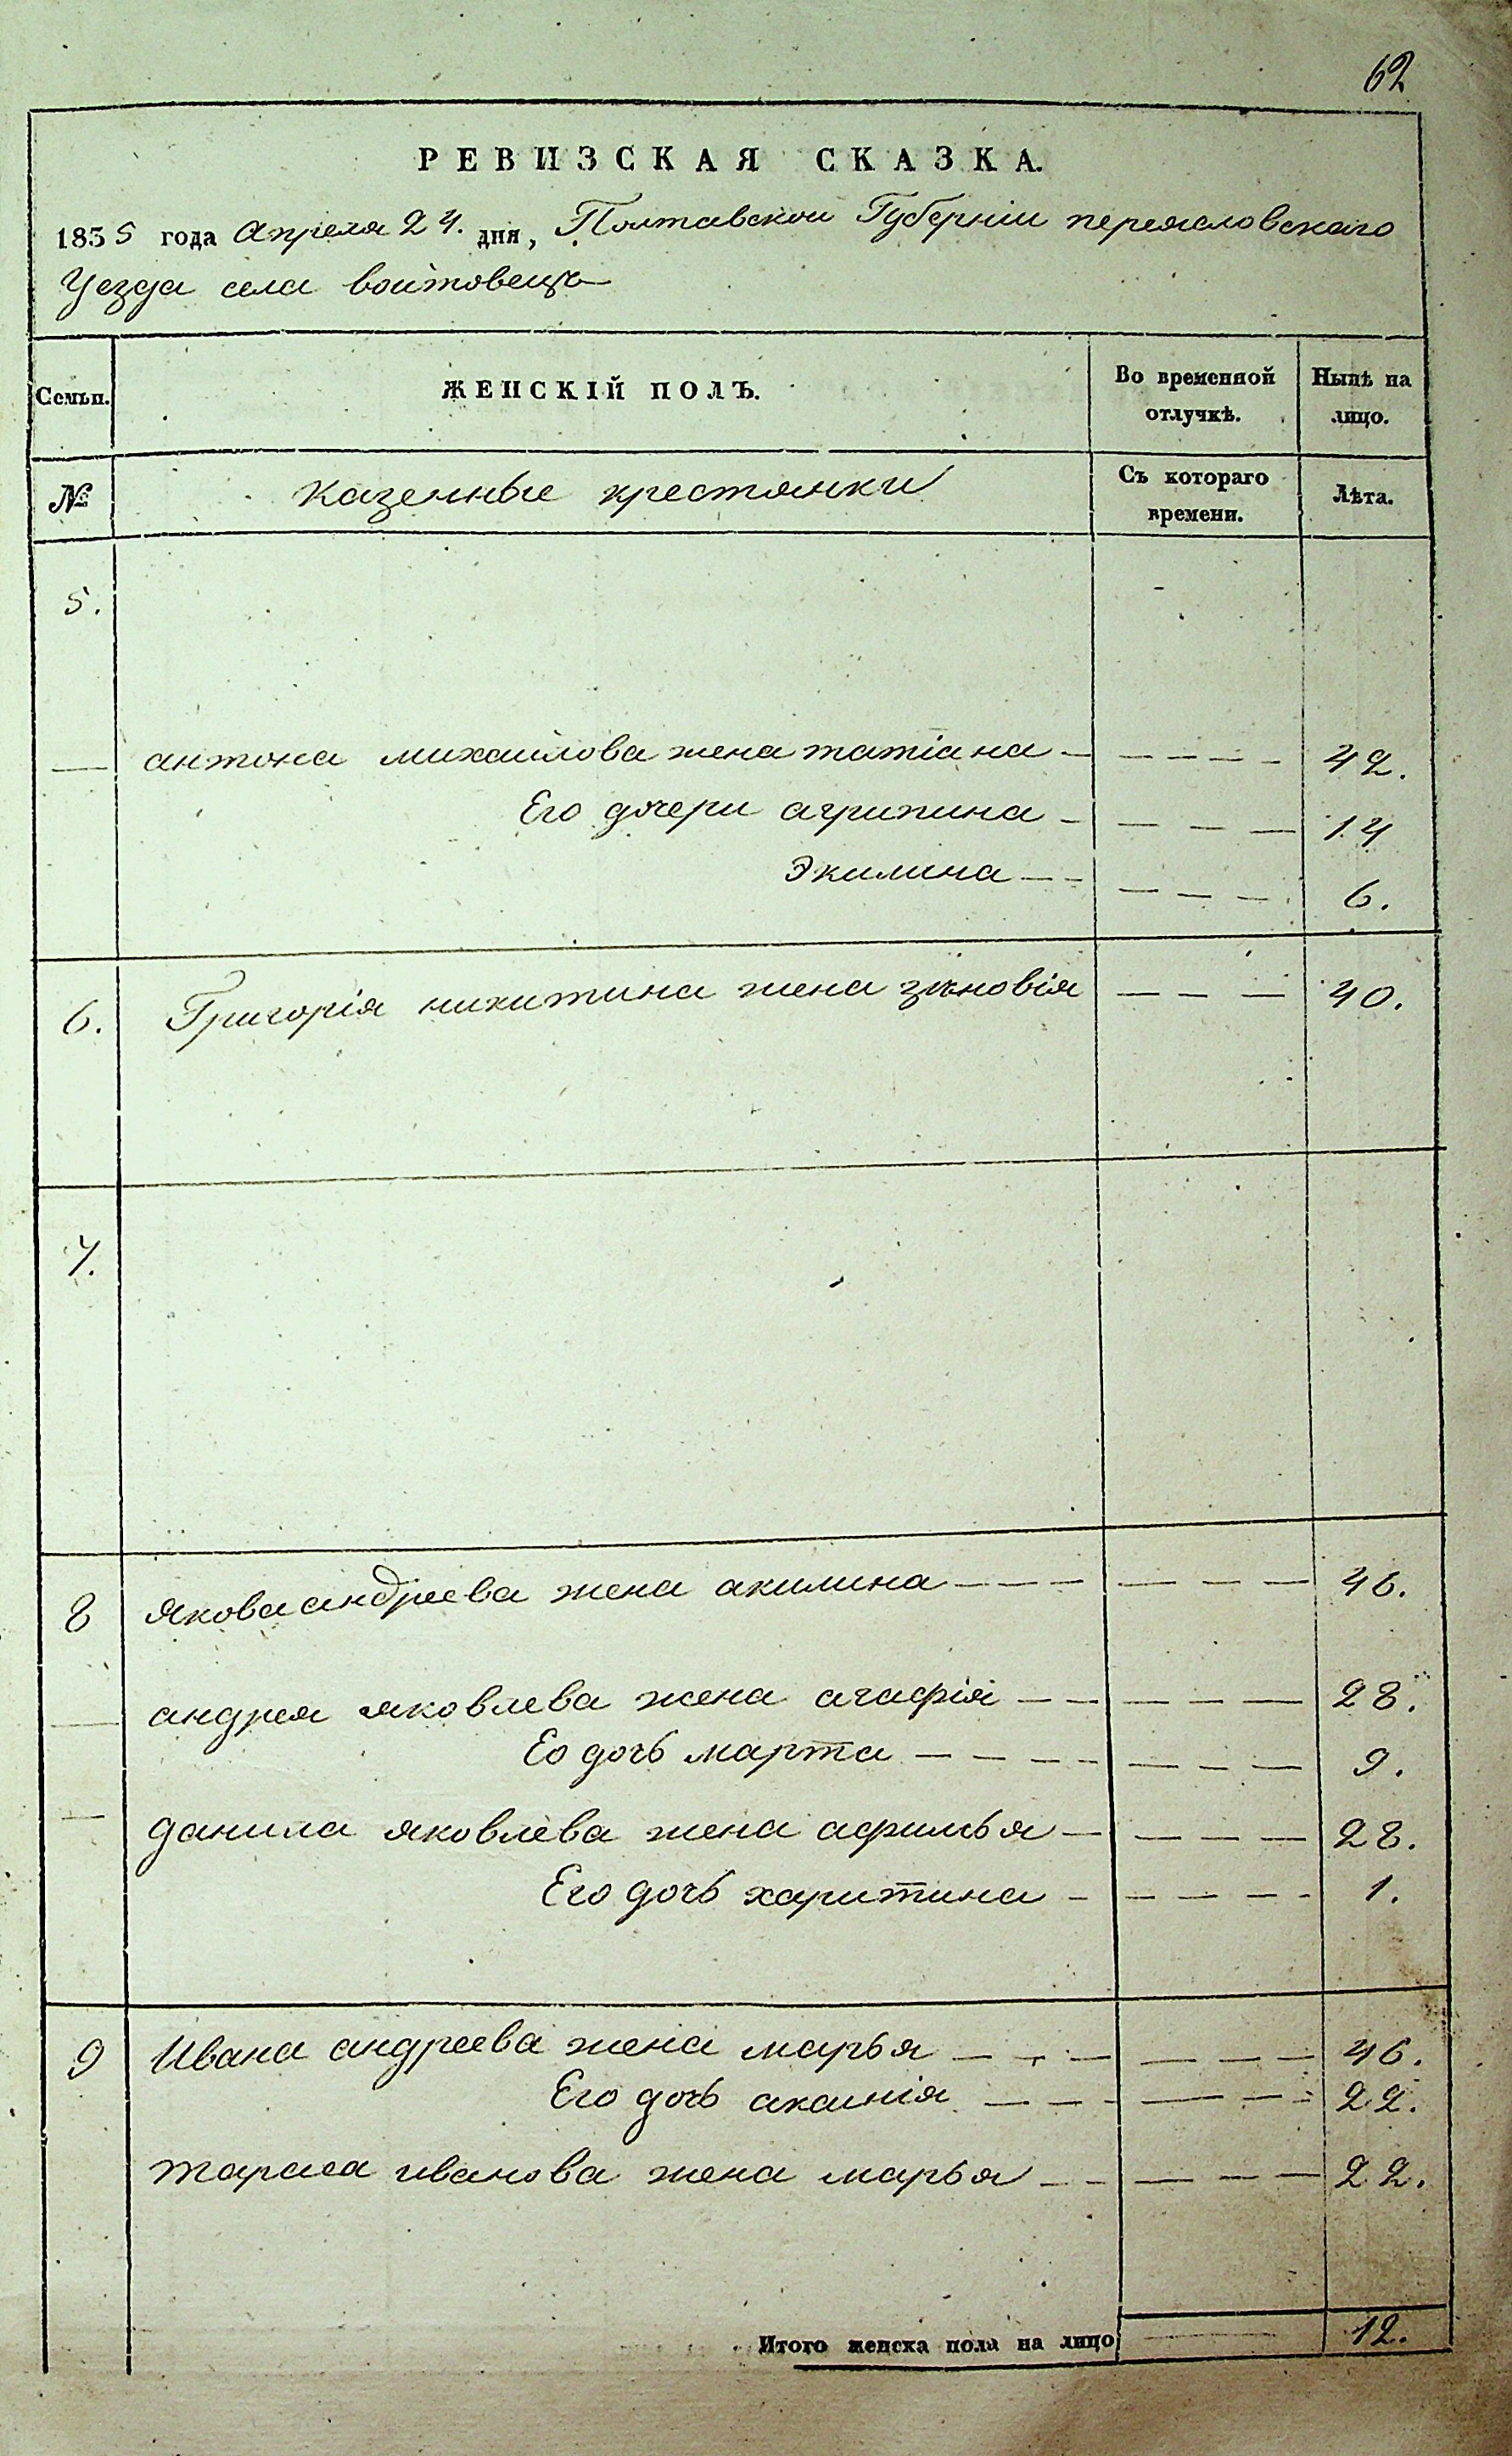 62
РЕВИЗСКАЯ СКАЗКА.
1835 года Апреля 24. дня, Полтавской Губерніи переясловскаго
Уезда села войтовець
Семьи. ЖЕНСКІЙ ПОЛЪ. Во временной отлучкѣ. Нынѣ на лицо.
№ Казенные крестянки Съ котораго времени. Лѣта.
5.
— антона михайлова жена татіана — — — — — 42.
Его дочери агрипина — — — — 14
Экилина — — — — — 6.
6. Григорія никитина жена зѣновія — — — 40.
7.
8 Якова андреева жена акилина — — — — — — 46.
— андрея яковлева жена агафія — — — — — 28.
Ео дочь марта — — — — — — — 9.
— данила яковлева жена афимья — — — — 28.
Его дочь харитина — — — — — 1.
9 Ивана андреева жена марья — — — — — — 46.
Его дочь акаинія — — — — — 22.
тараса иванова жена марья — — — — — 22.
Итого женска пола на лицо — 12.